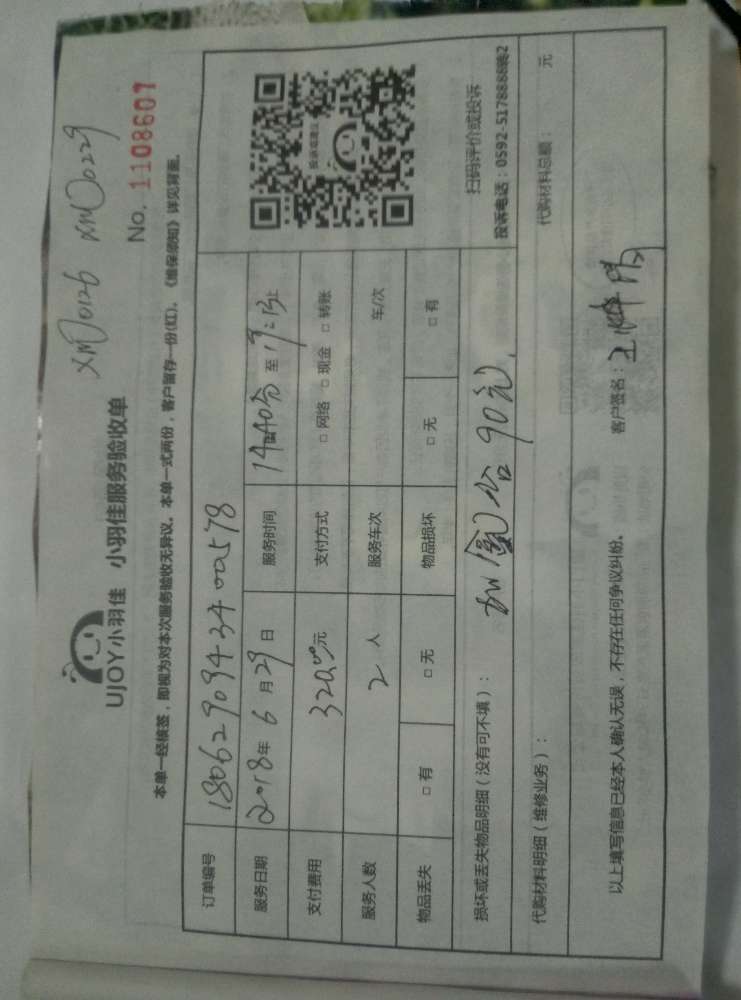 XM0126 XM0229
UJOY小羽佳 小羽佳服务验收单
No. 1108607
本单一经核签，即视为对本次服务验收无异议。本单一式两份，客户留存一份(红)。《维保须知》详见背面。
订单编号 180629094340 0578
服务日期 2018年 6 月 29 日 服务时间 14:40分 至 19:13止
支付费用 320.00元 支付方式 □ 网络 □ 现金 □ 转账
服务人数 2 人 服务车次 车/次
物品丢失 □ 有 □ 无 物品损坏 □ 无 □ 有
投诉或建议
扫码评价或投诉
投诉电话：0592-5178888转2
损坏或丢失物品明细（没有可不填）： 90元
代购材料明细（维修业务）： 代购材料总额： 元
以上填写信息已经本人确认无误，不存在任何争议纠纷。 客户签名：